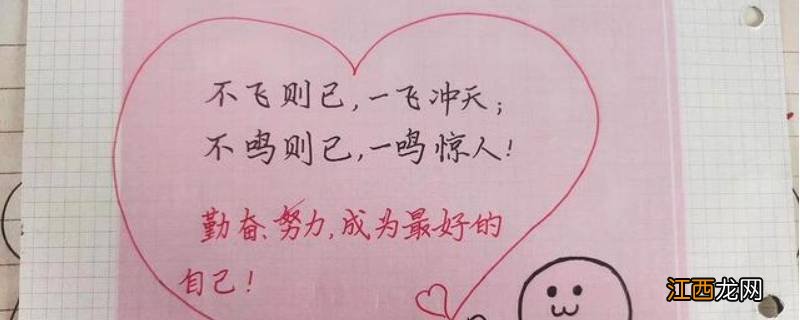 不飞则已,一飞冲天;
不鸣则已,一鸣惊人!
勤奋、努力,成为最好的
自己!
江西龙网